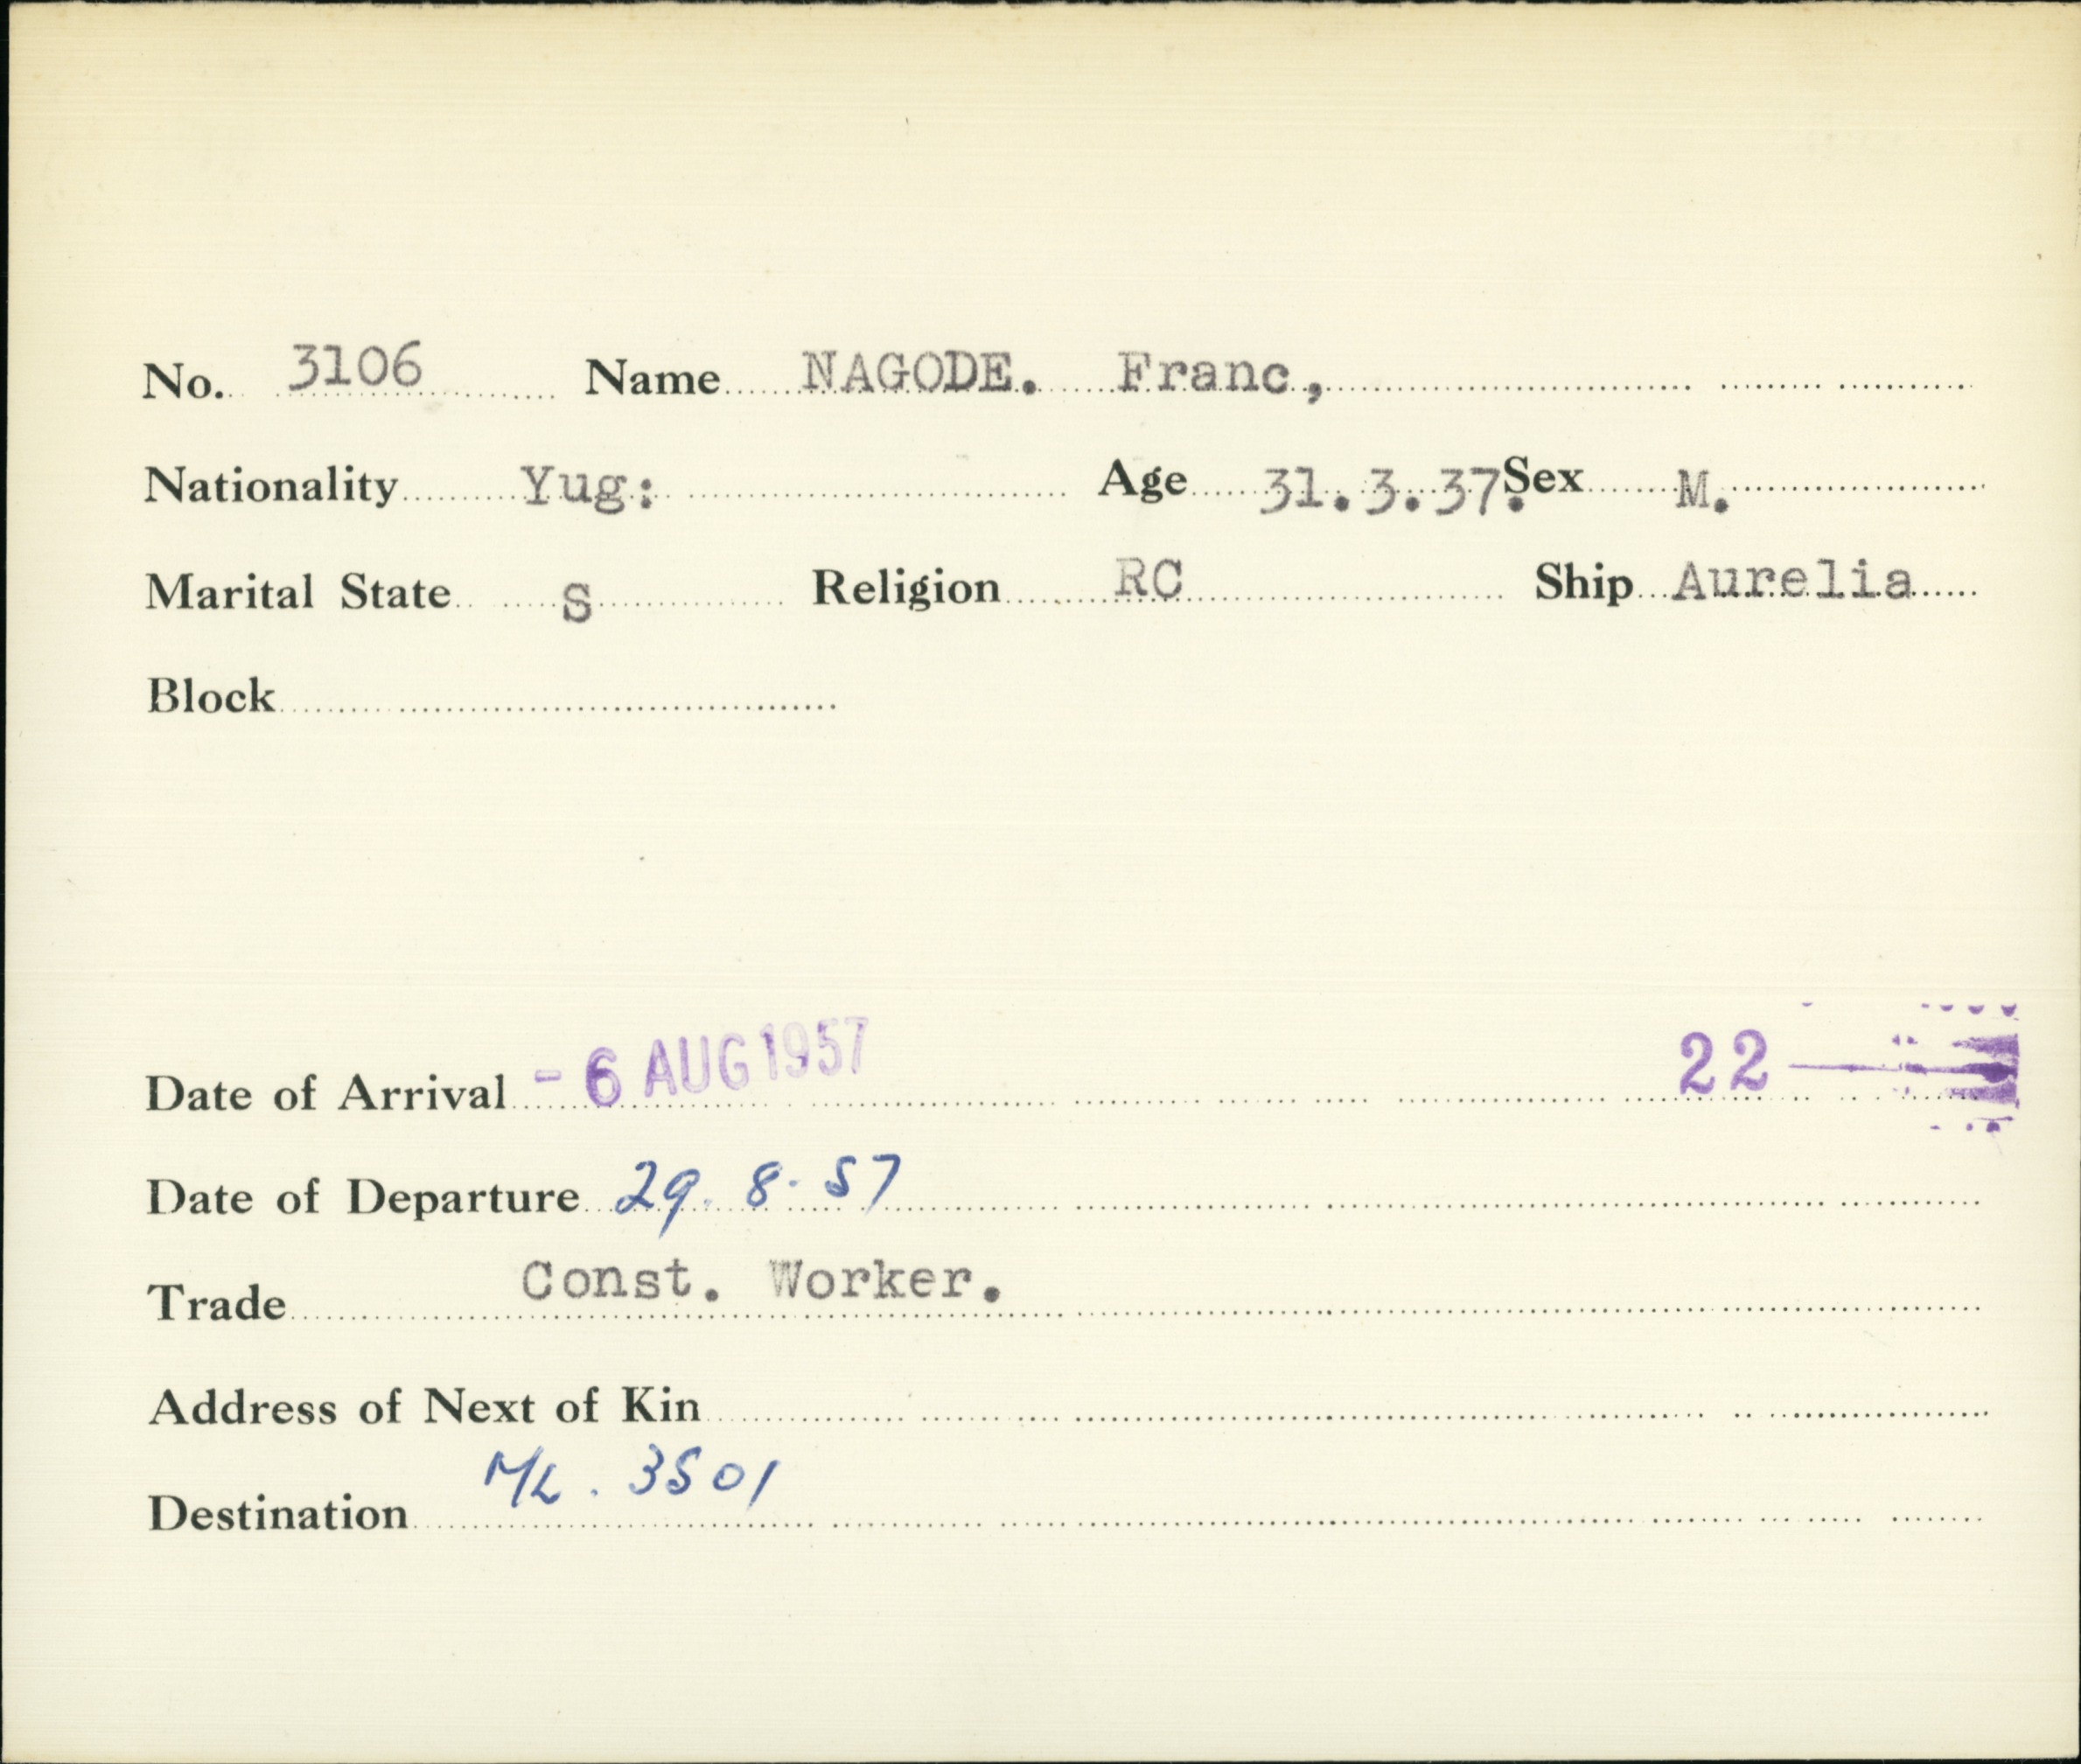 No. 3106 Name NAGODE. Franc,
Nationality Yug: Age 31.3.37. Sex M.
Marital State S Religion RC Ship Aurelia
Block
Date of Arrival - 6 AUG 1957 22
Date of Departure 29. 8. 57
Trade Const. Worker.
Address of Next of Kin
Destination ML. 3501